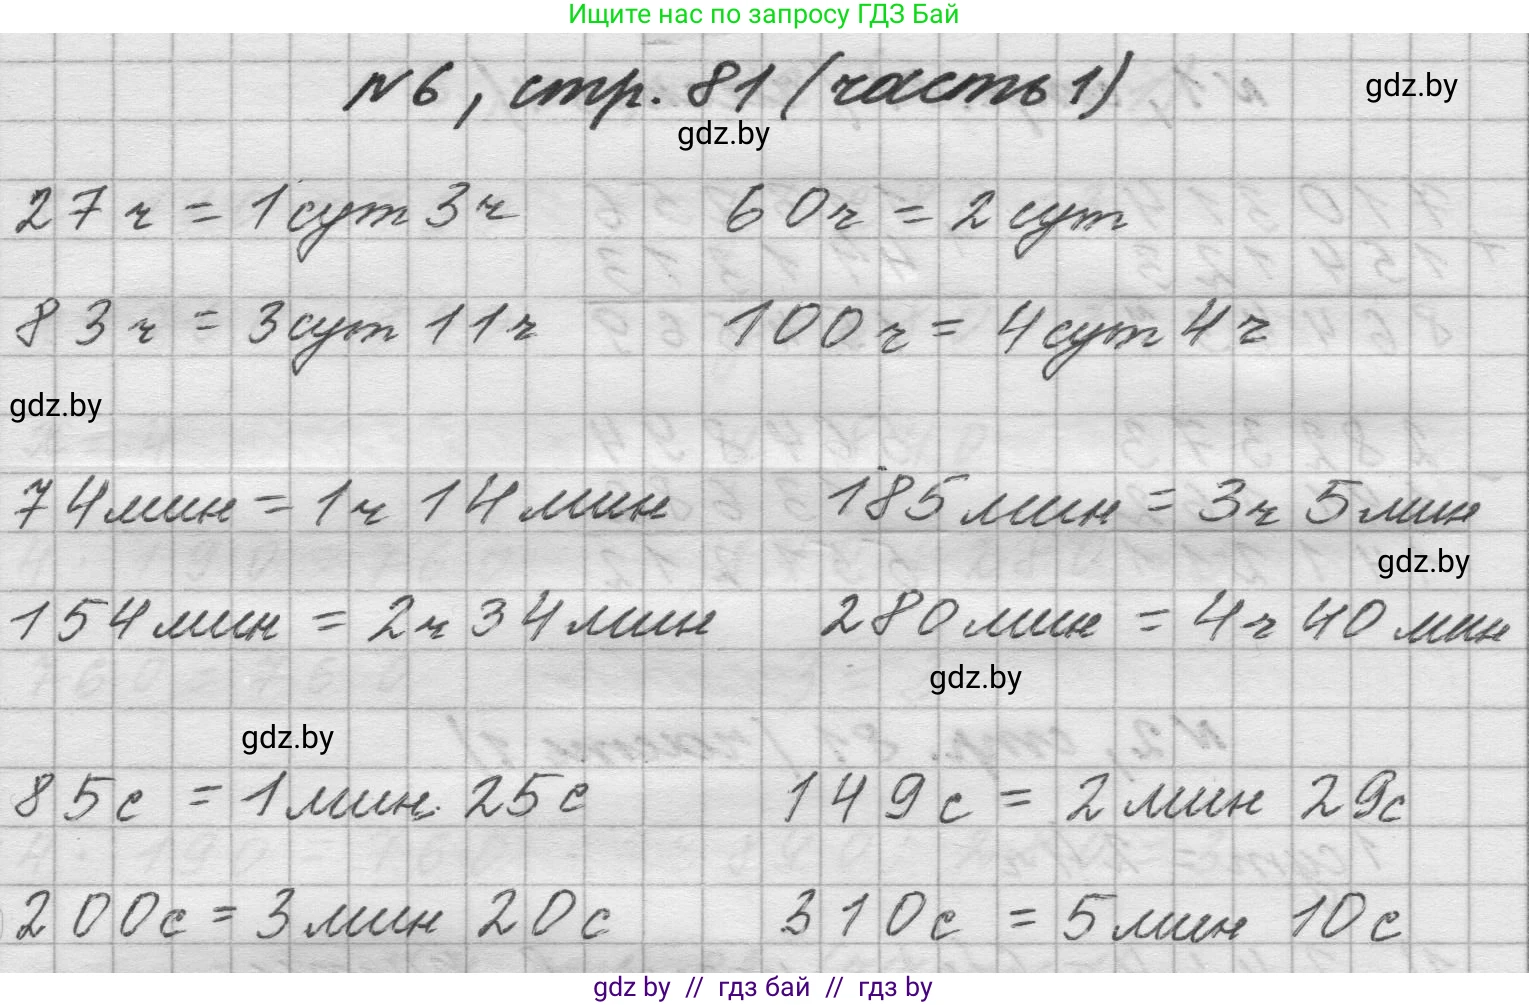 Ищите нас по запросу ГДЗ Бай
№6, стр. 81 (часть 1)
gdz.by
gdz.by
27 ч = 1 сут 3 ч 60 ч = 2 сут
83 ч = 3 сут 11 ч 100 ч = 4 сут 4 ч
gdz.by
74 мин = 1 ч 14 мин 185 мин = 3 ч 5 мин
gdz.by
154 мин = 2 ч 34 мин 280 мин = 4 ч 40 мин
gdz.by
gdz.by
85 с = 1 мин. 25 с 149 с = 2 мин 29 с
200 с = 3 мин 20 с 310 с = 5 мин 10 с
gdz by // гдз бай // гдз by